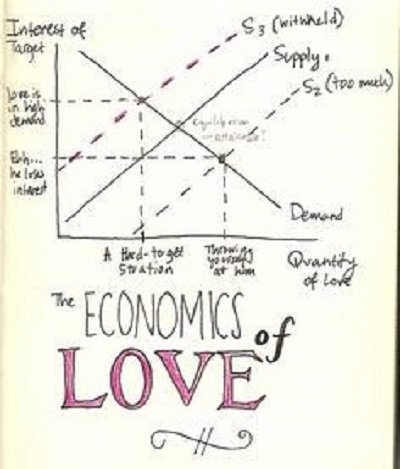 Interest of
Target
S3 (withheld)
Supply.
S2 (too much)
Love is
in high
demand
Equilibrium
— attainable?
Ehh...
he loses
interest
Demand
A Hard-to-get
Throwing
yourself
at him
Quantity
of Love
The ECONOMICS of
LOVE